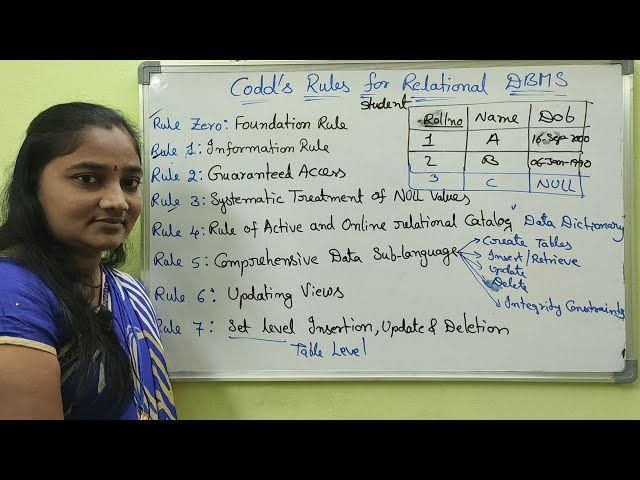 Codd's Rules for Relational DBMS
Student
Rollno Name Dob
1 A 16-Sep-2000
2 B 06-Jan-1990
3 C NULL
Rule Zero: Foundation Rule
Rule 1: Information Rule
Rule 2: Guaranteed Access
Rule 3: Systematic Treatment of NULL Values
Rule 4: Rule of Active and Online relational Catalog "Data Dictionary
Rule 5: Comprehensive Data Sub-language
Create Tables
Insert/Retrieve
Update
Delete
Integrity Constraints
Rule 6: Updating Views
Rule 7: Set level Insertion, Update & Deletion
Table Level